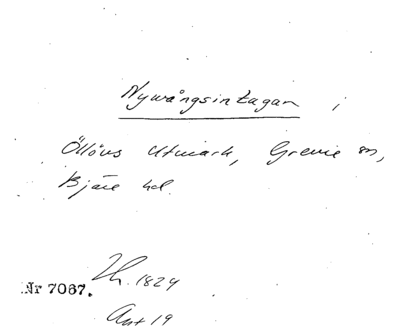 Nywångsintagan i
Öllövs Utmark, Grevie sn,
Bjäre hd.
Nr 7067.
1824
Ant 19